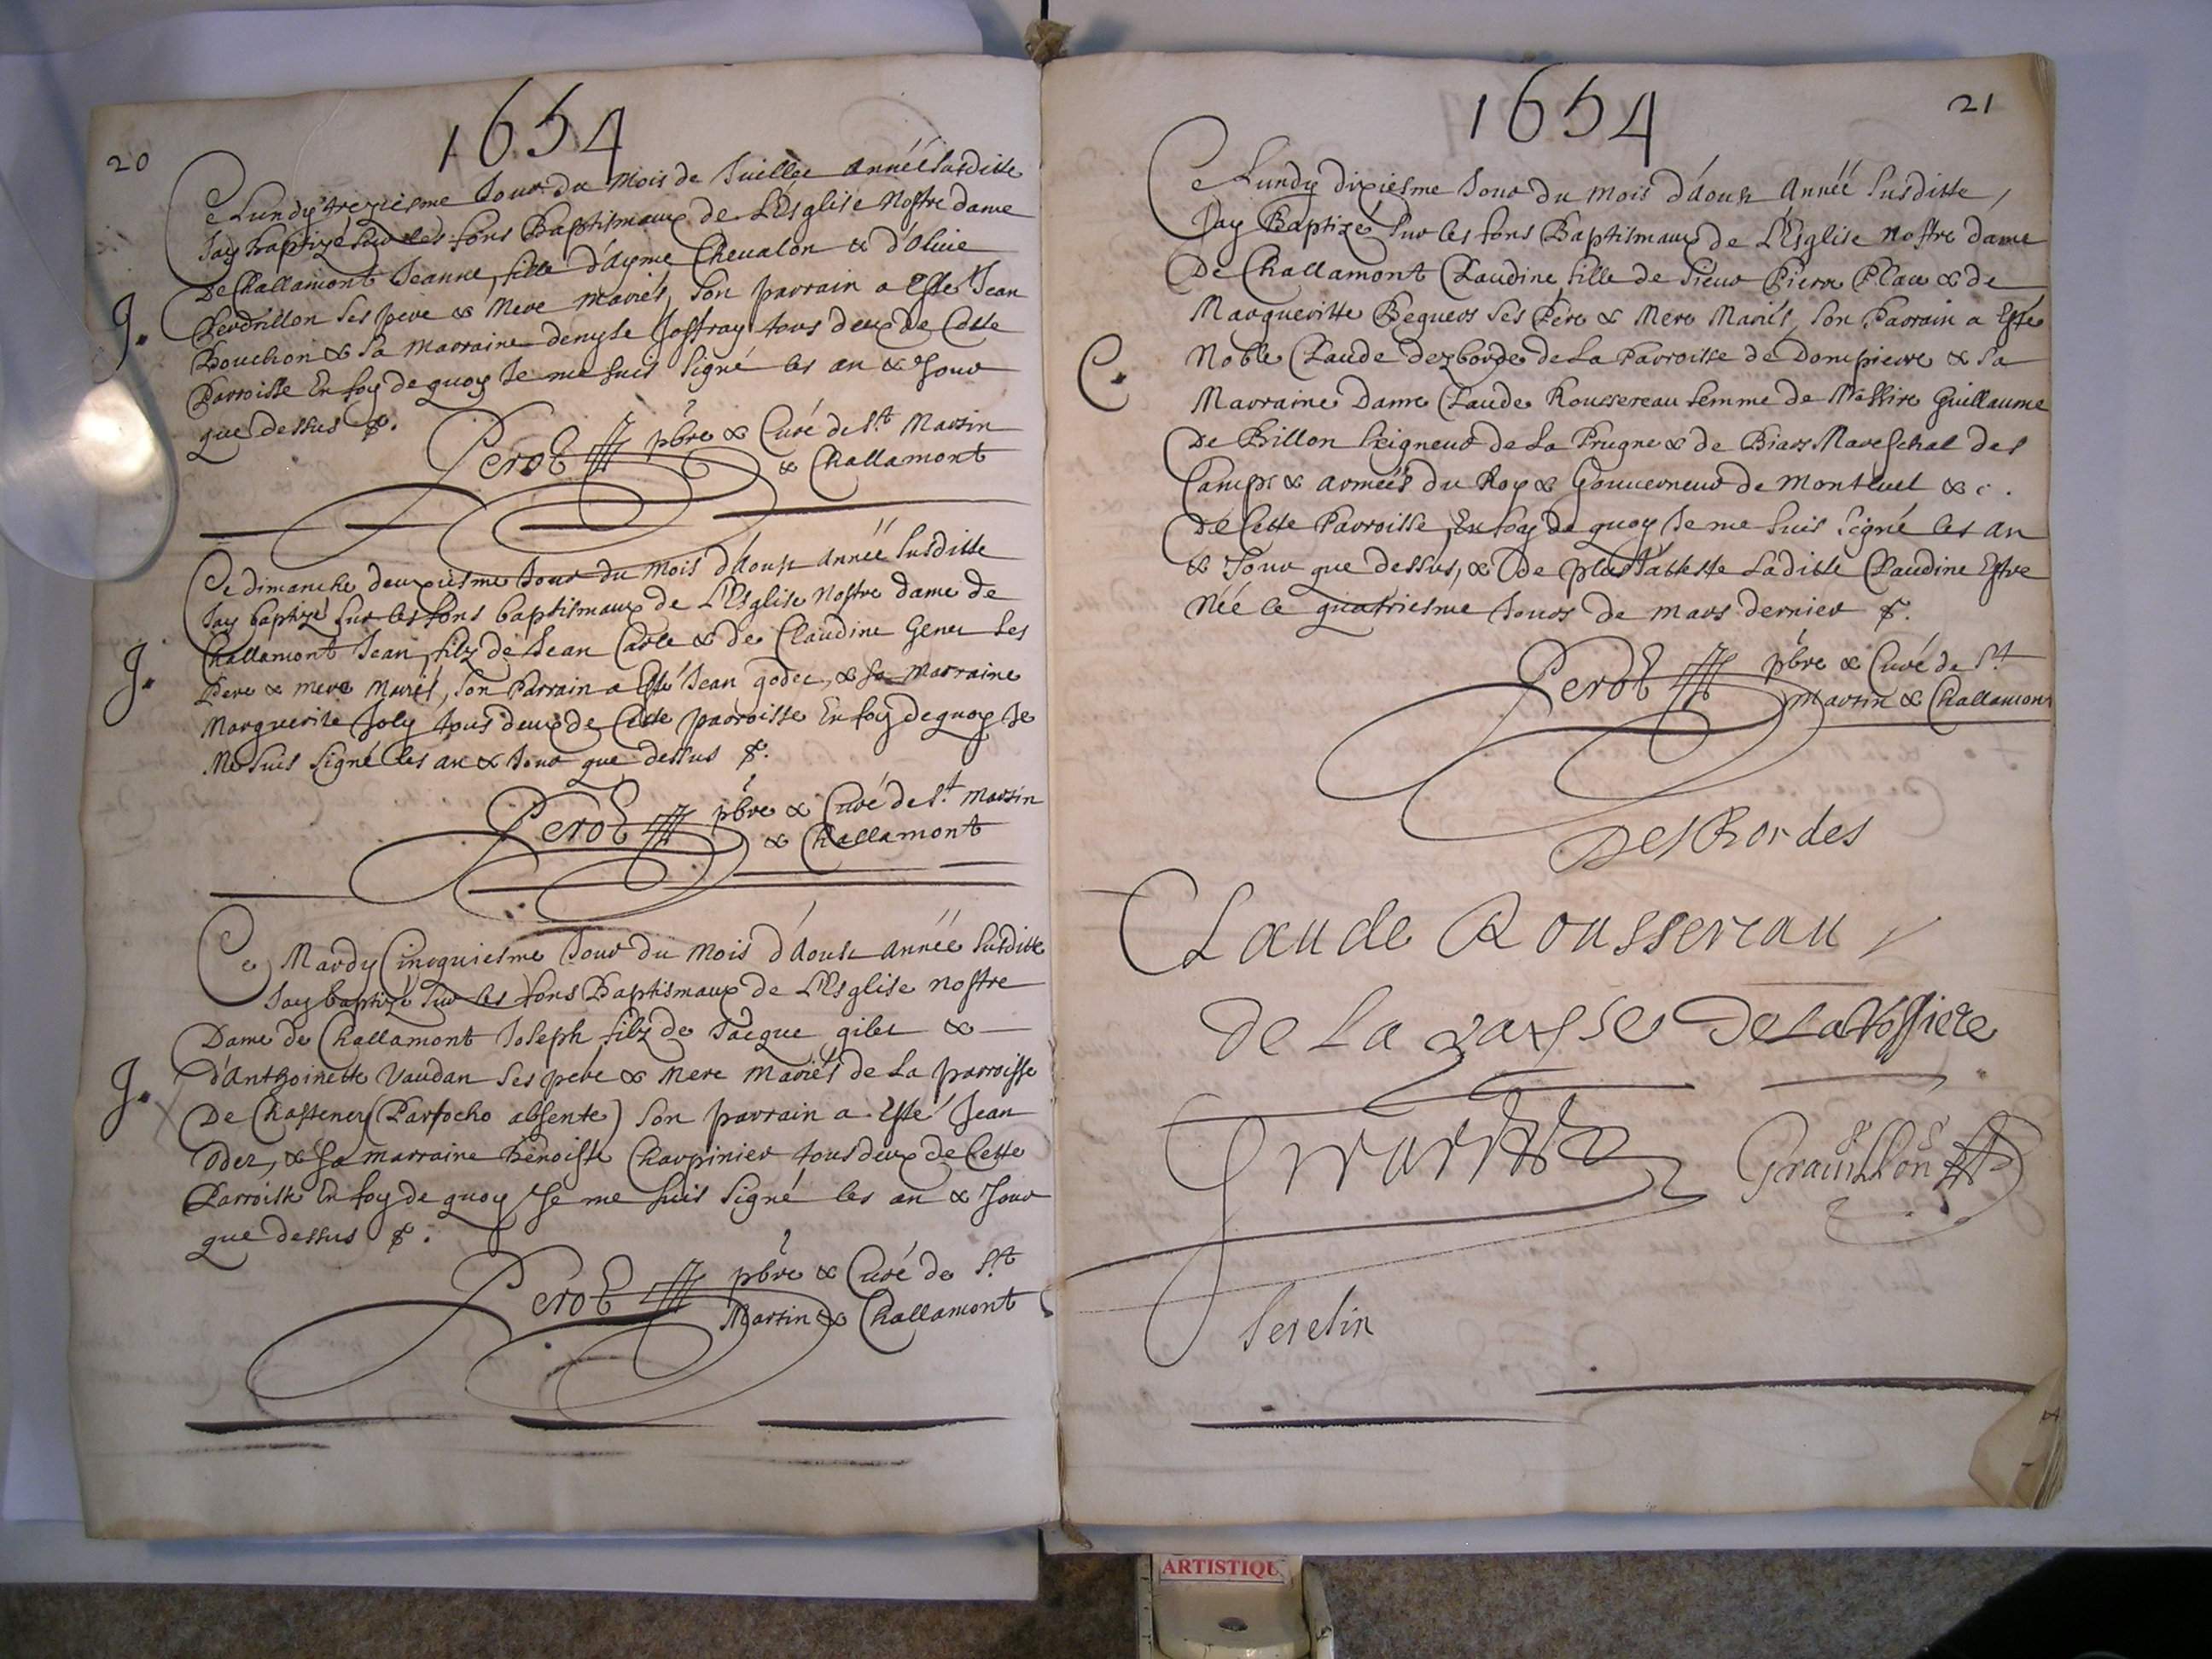 20
1654
Ce Lundy treziesme Jour du Mois de Juillet Année Susditte
Jay baptizé Sur les fons Baptismaux de L'Esglise Nostre dame
De Challamont Jeanne, fille d'Ayme Cheualon & d'Oliue
Perdrillon Ses pere & Mere mariés, Son parrain a Esté Jean
Bouchon & Sa marraine denyse Joffray tous deux de Cette
Parroisse En foy de quoy Je me suis Signé les an & Jour
que dessus
J.
Perot pbre & Curé de St. Martin
& Challamont
Ce dimanche deuxiesme Jour du Mois d'Aoust Année Susditte
Jay baptizé Sur les fons baptismaux de L'Esglise Nostre dame de
Challamont Jean, filz de Jean Carle & de Claudine Genet Ses
Pere & mere Mariés, Son Parrain a Esté Jean godet, & Sa Marraine
Marguerite Joly tous deux de Cette parroisse En foy de quoy Je
Me Suis Signé les an & Jour que dessus
J.
Perot pbre & Curé de St. Martin
& Challamont
Ce Mardy Cinquiesme Jour du Mois d'Aoust Année Susditte
Jay baptizé Sur les fons Baptismaux de L'Esglise nostre
Dame de Challamont Joseph filz de Jacque gilet &
d'Anthoinette Vaudan Ses pere & Mere mariés de La parroisse
De Chastenex (Parrocho absente) Son parrain a Esté Jean
Odet, & Sa marraine Benoiste Charpinier tous deux de Cette
Parroisse En foy de quoy Je me suis Signé les an & Jour
que dessus
J.
Perot pbre & Curé de St.
Martin & Challamont
21
1654
Ce Lundy dixiesme Jour du Mois d'aoust Année Susditte,
Jay Baptizé Sur les fons Baptismaux de L'Esglise Nostre dame
De Challamont Claudine, fille de Sieur Pierre Plau & de
Margueritte Beguers Ses Pére & Mere Mariés, Son Parrain a Esté
Noble Claude dezborde de La Parroisse de Dompierre & Sa
Marraine Dame Claude Roussereau femme de Messire Guillaume
De Brillon Seigneur de La Prugne & de Biars Mareschal des
Camps & armées du Roy & Gouuerneur de Montluel &c.
De Cette Parroisse, En foy de quoy Je me Suis Signé les an
& Jour que dessus, & de plus J'atteste Laditte Claudine Estre
Née le quatriesme Jours de mars dernier
C.
Perot pbre & Curé de St.
Martin & Challamont
DesBordes
Claude Roussereau
de La
Grauillon
Serelin
ARTISTIQU